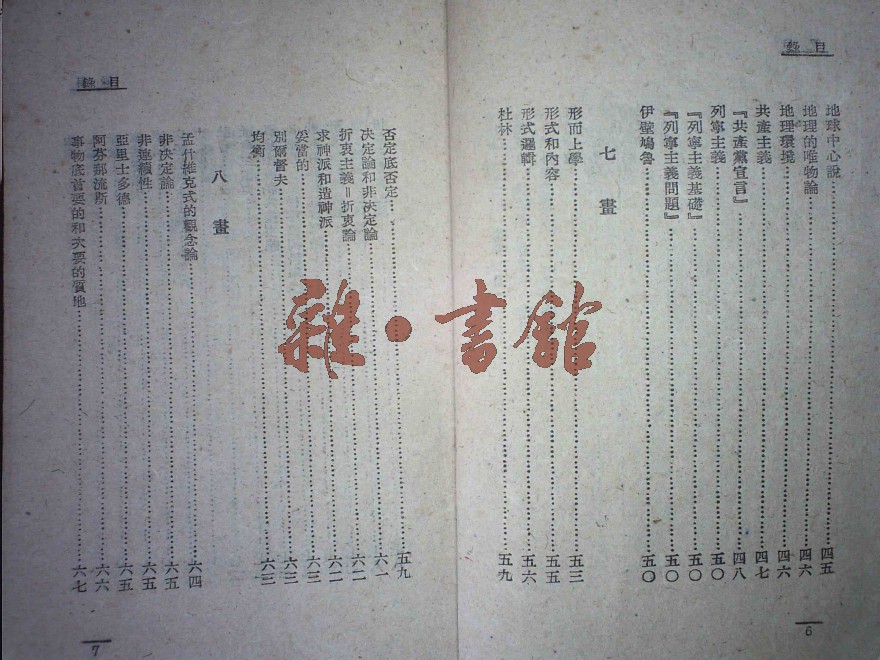 目錄
地球中心說……四五
地理的唯物論……四六
地理環境……四六
共產主義……四七
『共產黨宣言』……四八
列寧主義……五〇
『列寧主義基礎』……五〇
『列寧主義問題』……五〇
伊壁鳩魯……五〇
七畫
形而上學……五三
形式和內容……五五
形式邏輯……五六
杜林……五九
6
目錄
否定底否定……五九
决定論和非决定論……六一
折衷主義＝折衷論……六二
求神派和造神派……六二
妥當的……六三
別爾督夫……六三
均衡……六三
八畫
孟什維克式的觀念論……六四
非決定論……六五
非連續性……六五
亞里士多德……六五
阿芬那流斯……六六
事物底首要的和次要的質地……六七
7
雜·書館